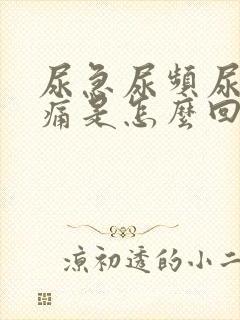 尿急尿頻尿
痛是怎麼回
涼初透的小二